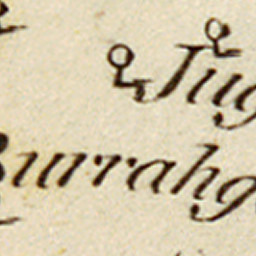 Jug
urrahg